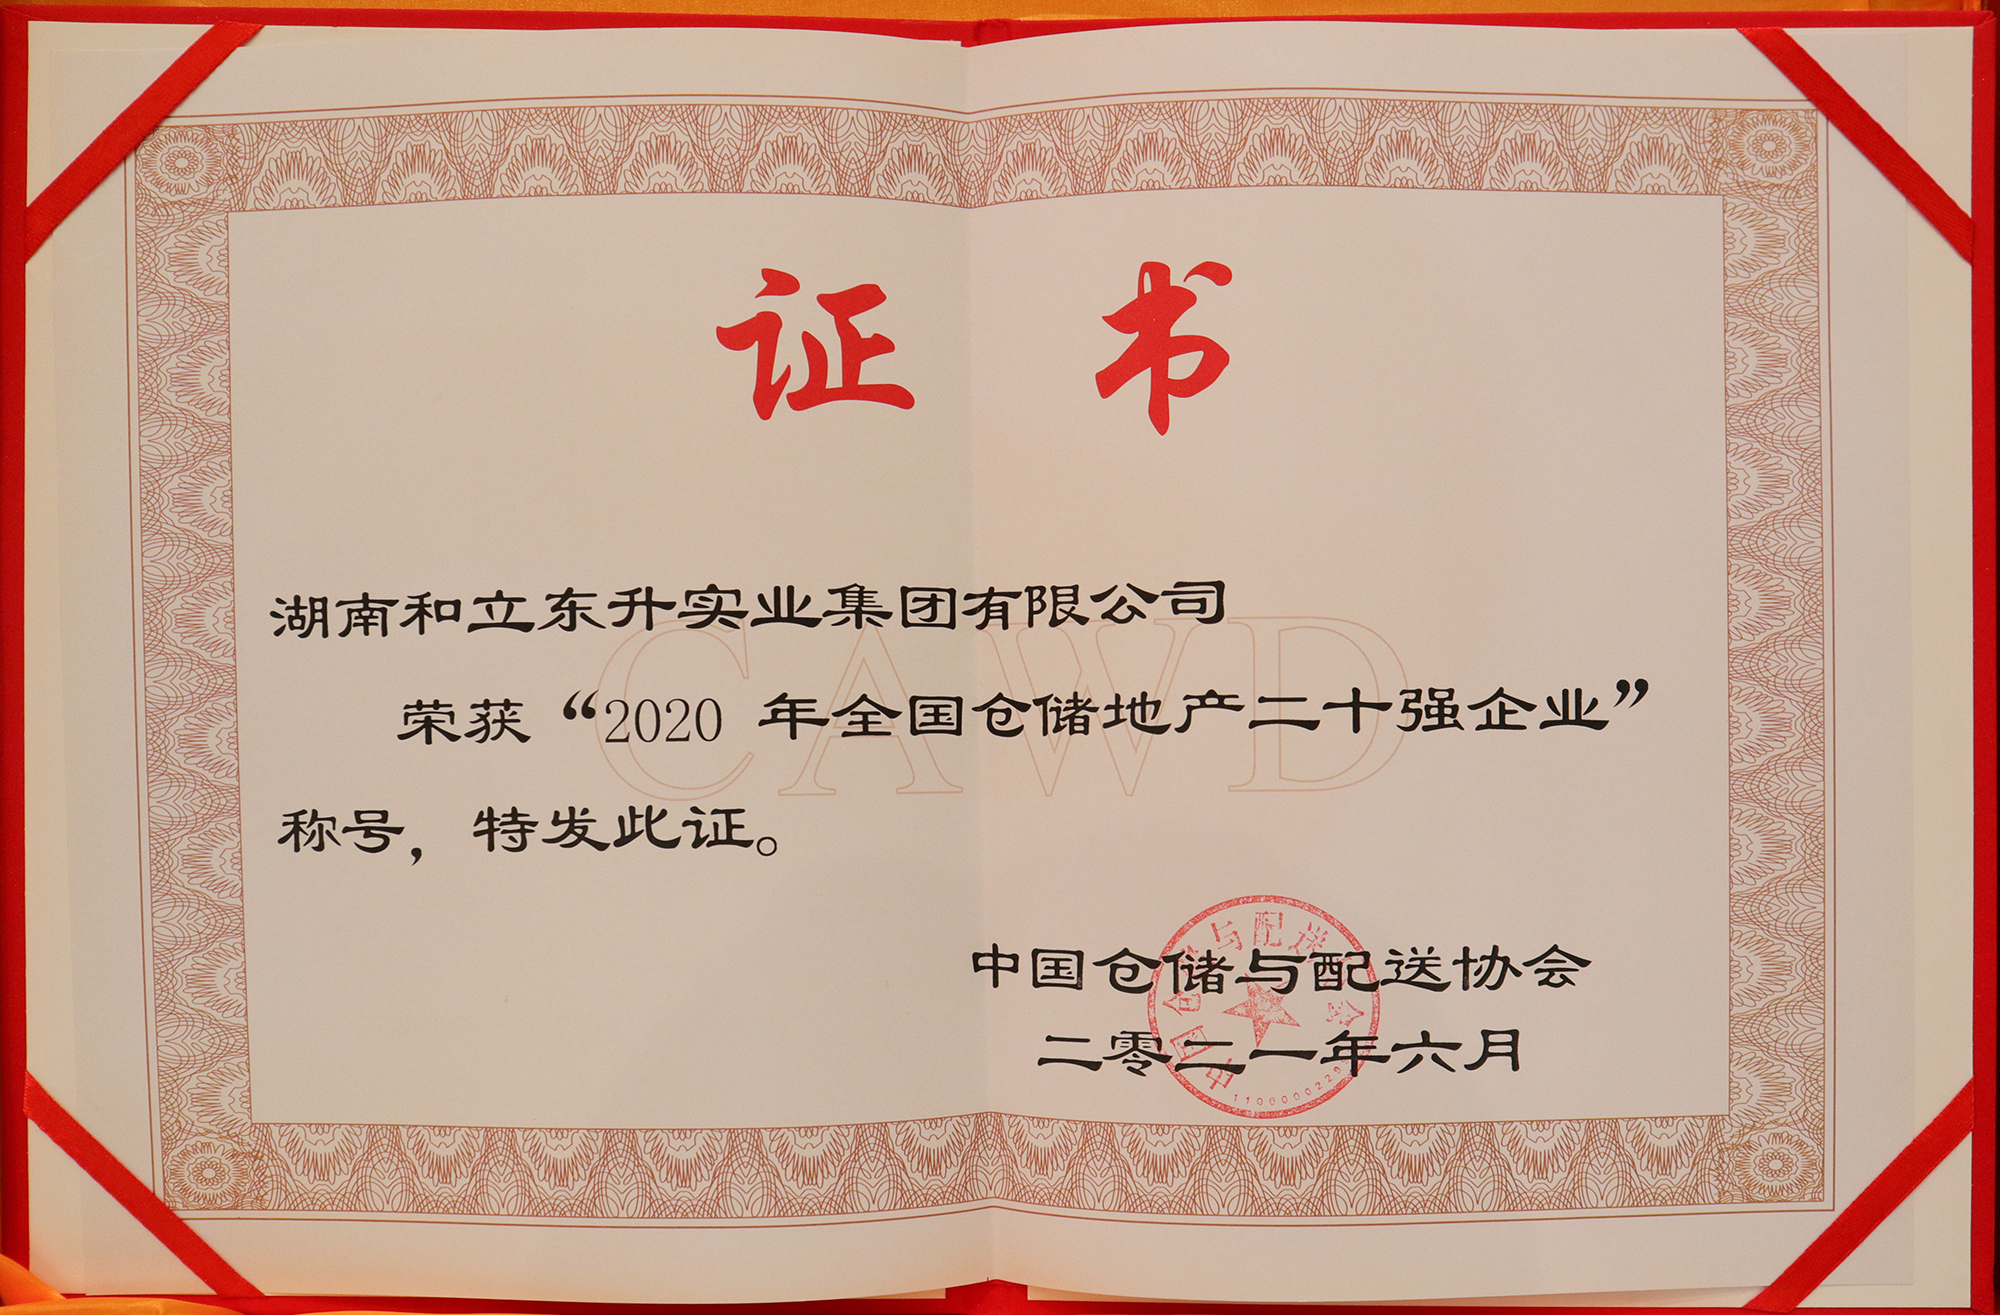 证书
湖南和立东升实业集团有限公司
CAWD
荣获“2020 年全国仓储地产二十强企业”
称号，特发此证。
中国仓储与配送协会
二零二一年六月